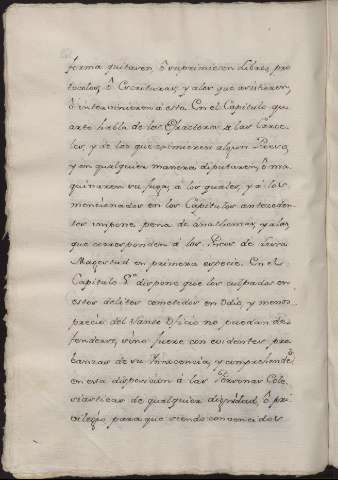 forma quitaren, ô suprimiesen Libros, pro
tocolos, ô Escrituras, y á los que asistieren,
ô intervinieren á esta. En el Capitulo qu
arto habla de los Fractores de las Carce
les, y de los que eximieren algun Preso,
y en qualquier manera disputaren, ô ma
quinaren su fuga, á los quales, y á los
mencionados en los Capitulos anteceden
tes impone pena de Anathema, y á las
que corresponden á los Reos de Lesa
Magestad en primera especie. En el
Capitulo 5.º dispone que los culpados en
estos delitos cometidos en Odio, y menos
precio del Santo Oficio no puedan de
fenderse, sino fuere con evidentes pro
banzas de su Innocencia, y comprehende
en esta disposicion á las Personas Ecle
siasticas de qualquier dignidad, ô pri
vilegio para que siendo convencidos